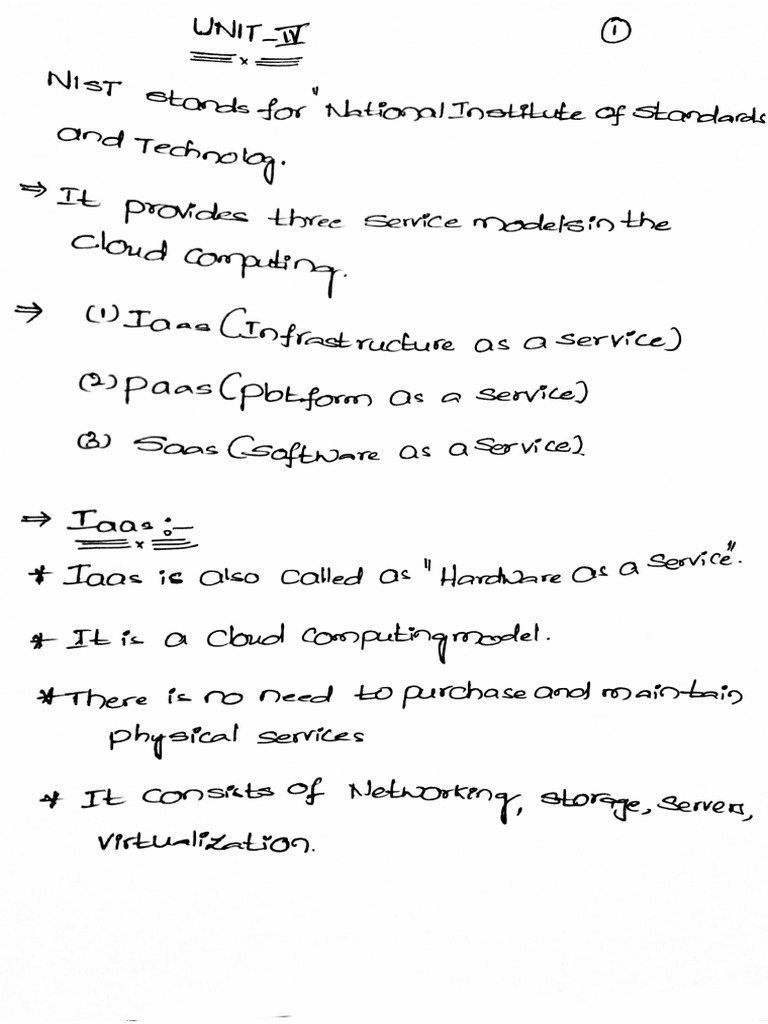 UNIT-IV
①
NIST stands for "National Institute of Standards
and Technolog.
⇒ It provides three service models in the
Cloud computing.
⇒ (1) Iaas (Infrastructure as a service)
(2) Paas (Platform as a service)
(3) Saas (Software as a service).
⇒ Iaas :-
* Iaas is also called as "Hardware as a service".
* It is a cloud computing model.
* There is no need to purchase and maintain
physical services
* It consists of Networking, storage, servers,
virtualization.